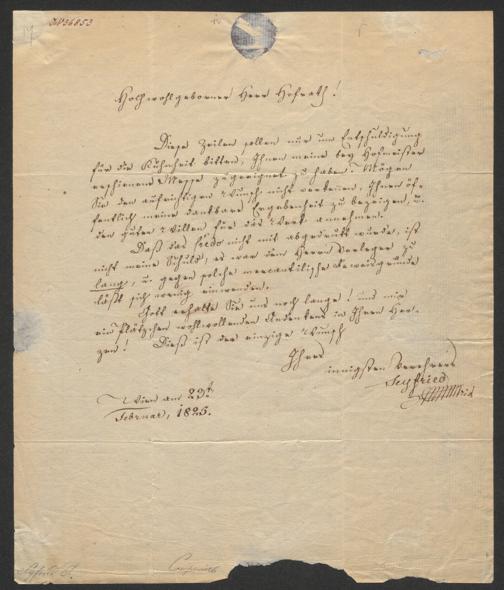 Hochwohlgeborner Herr Hofrath!
Diese Zeilen sollen nur um Entschuldigung
für die Kühnheit bitten, Ihnen meine bey Hofmeister
erschienene Messe zugeeignet zu haben. Mögen
Sie den aufrichtigen Wunsch nicht verkennen, Ihnen öf-
fentlich meine dankbare Ergebenheit zu bezeigen, u.
den guten Willen für das Werk annehmen.
Daß das Credo nicht mit abgedruckt wurde, ist
nicht meine Schuld, es war dem Herrn Verleger zu
lang, u. gegen solche mercantilische Beweisgründe
läßt sich wenig einwenden.
Gott erhalte Sie uns noch lange! und mir
ein Plätzchen wohlwollenden Andenkens in Ihrem Her-
zen! Dieß ist der einzige Wunsch
Ihres
innigsten Verehrers
Seyfried
Wien am 23t
Februar, 1825.